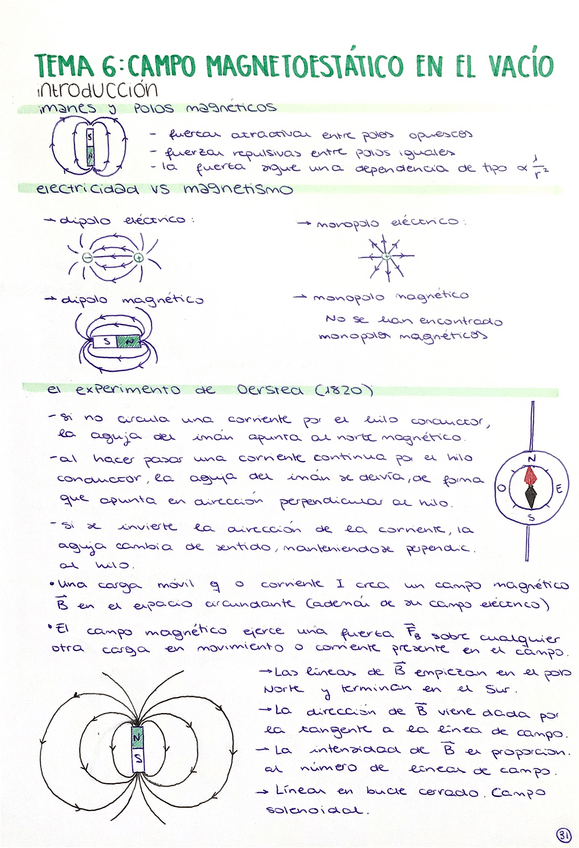 TEMA 6: CAMPO MAGNETOESTÁTICO EN EL VACÍO
introducción
imanes y polos magnéticos
S
N
- fuerzas atractivas entre polos opuestos
- fuerzas repulsivas entre polos iguales
- la fuerza sigue una dependencia de tipo ∝ 1/r²
electricidad vs magnetismo
→ dipolo eléctrico:
→ monopolo eléctrico:
- +
+
→ dipolo magnético
→ monopolo magnético
S N
No se han encontrado
monopolos magnéticos
el experimento de Oersted (1820)
- si no circula una corriente por el hilo conductor,
la aguja del imán apunta al norte magnético.
- al hacer pasar una corriente continua por el hilo
conductor, la aguja del imán se desvía, de forma
que apunta en dirección perpendicular al hilo.
- si se invierte la dirección de la corriente, la
aguja cambia de sentido, manteniendose perpendic.
al hilo.
N
O E
S
• Una carga móvil q o corriente I crea un campo magnético
B⃗ en el espacio circundante (además de su campo eléctrico)
• El campo magnético ejerce una fuerza F⃗B sobre cualquier
otra carga en movimiento o corriente presente en el campo.
N
S
→ Las líneas de B⃗ empiezan en el polo
Norte y terminan en el Sur.
→ La dirección de B⃗ viene dada por
la tangente a la línea de campo.
→ La intensidad de B⃗ es proporcion.
al número de líneas de campo.
→ Líneas en bucle cerrado. Campo
solenoidal.
31